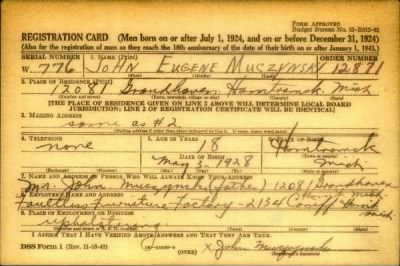 FORM APPROVED
Budget Bureau No. 33-R012-42
REGISTRATION CARD (Men born on or after July 1, 1924, and on or before December 31, 1924)
(Also for the registration of men as they reach the 18th anniversary of the date of their birth on or after January 1, 1943.)
SERIAL NUMBER 1. NAME (Print) ORDER NUMBER
W. 776 JOHN EUGENE MUCZYNSKI 12871
2. PLACE OF RESIDENCE (Print)
12081 Hamtramck, Mich
[THE PLACE OF RESIDENCE GIVEN ON LINE 2 ABOVE WILL DETERMINE LOCAL BOARD
JURISDICTION; LINE 2 OF REGISTRATION CERTIFICATE WILL BE IDENTICAL]
3. MAILING ADDRESS
same as #2
4. TELEPHONE 5. AGE IN YEARS 6. PLACE OF BIRTH
none 18 Hamtramck
DATE OF BIRTH
May 3, Mich
7. NAME AND ADDRESS OF PERSON WHO WILL ALWAYS KNOW YOUR ADDRESS
Mr. John Muczynski (father) 12081
8. EMPLOYER'S NAME AND ADDRESS
furniture factory - 2134 Mich
9. PLACE OF EMPLOYMENT OR BUSINESS
I AFFIRM THAT I HAVE VERIFIED ABOVE ANSWERS AND THAT THEY ARE TRUE.
DSS Form 1 (OVER) x John Muczynski